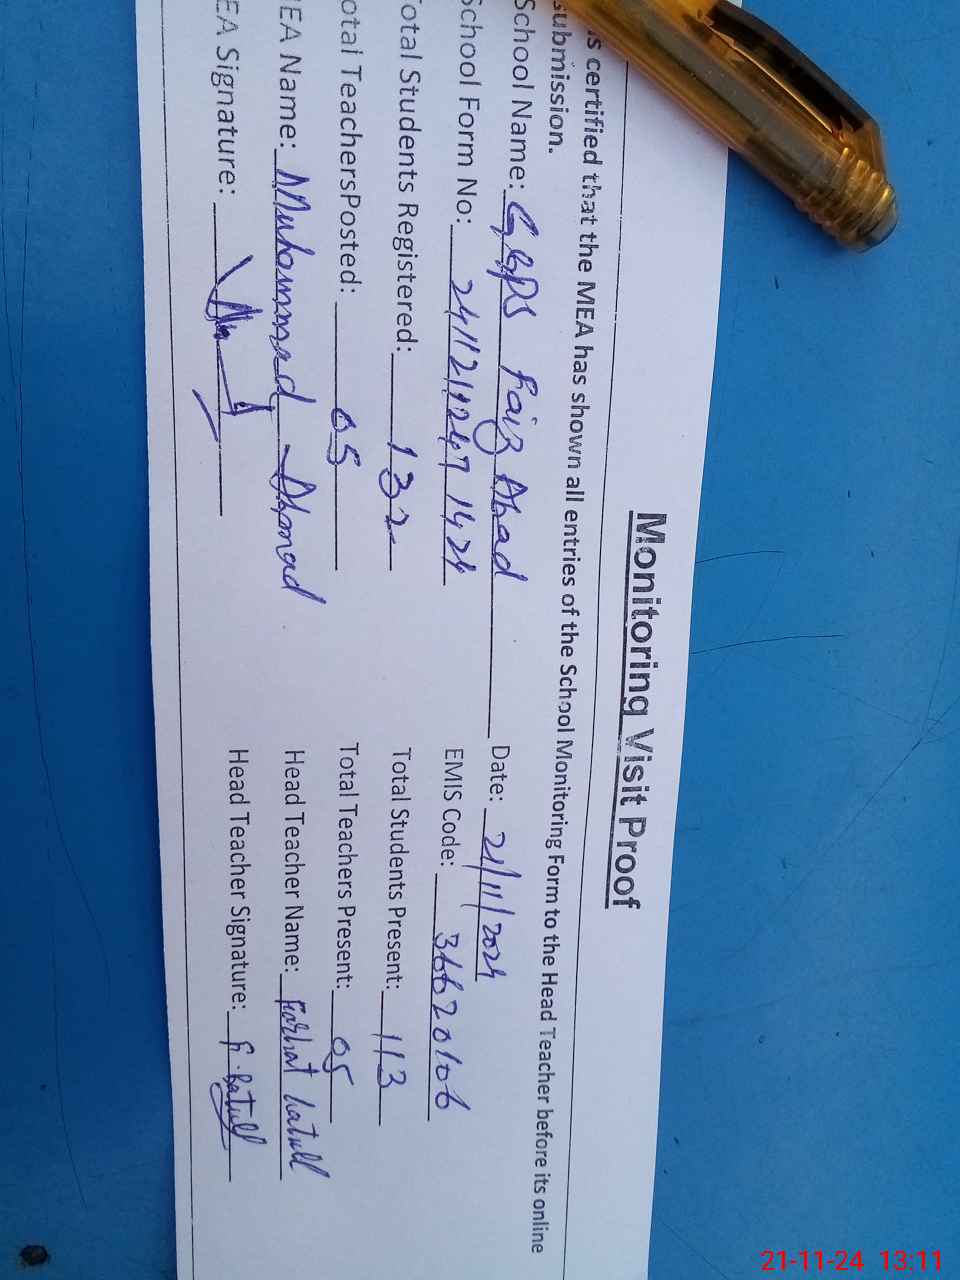 Monitoring Visit Proof
is certified that the MEA has shown all entries of the School Monitoring Form to the Head Teacher before its online
submission.
School Name: GGPS Faiz Abad Date: 21/11/2024
School Form No: 24112112471424 EMIS Code: 36620106
otal Students Registered: 132 Total Students Present: 113
otal TeachersPosted: 05 Total Teachers Present: 05
EA Name: Muhammad Ahmad Head Teacher Name: Farhat batull
EA Signature: Head Teacher Signature: F. Batull
21-11-24 13:11